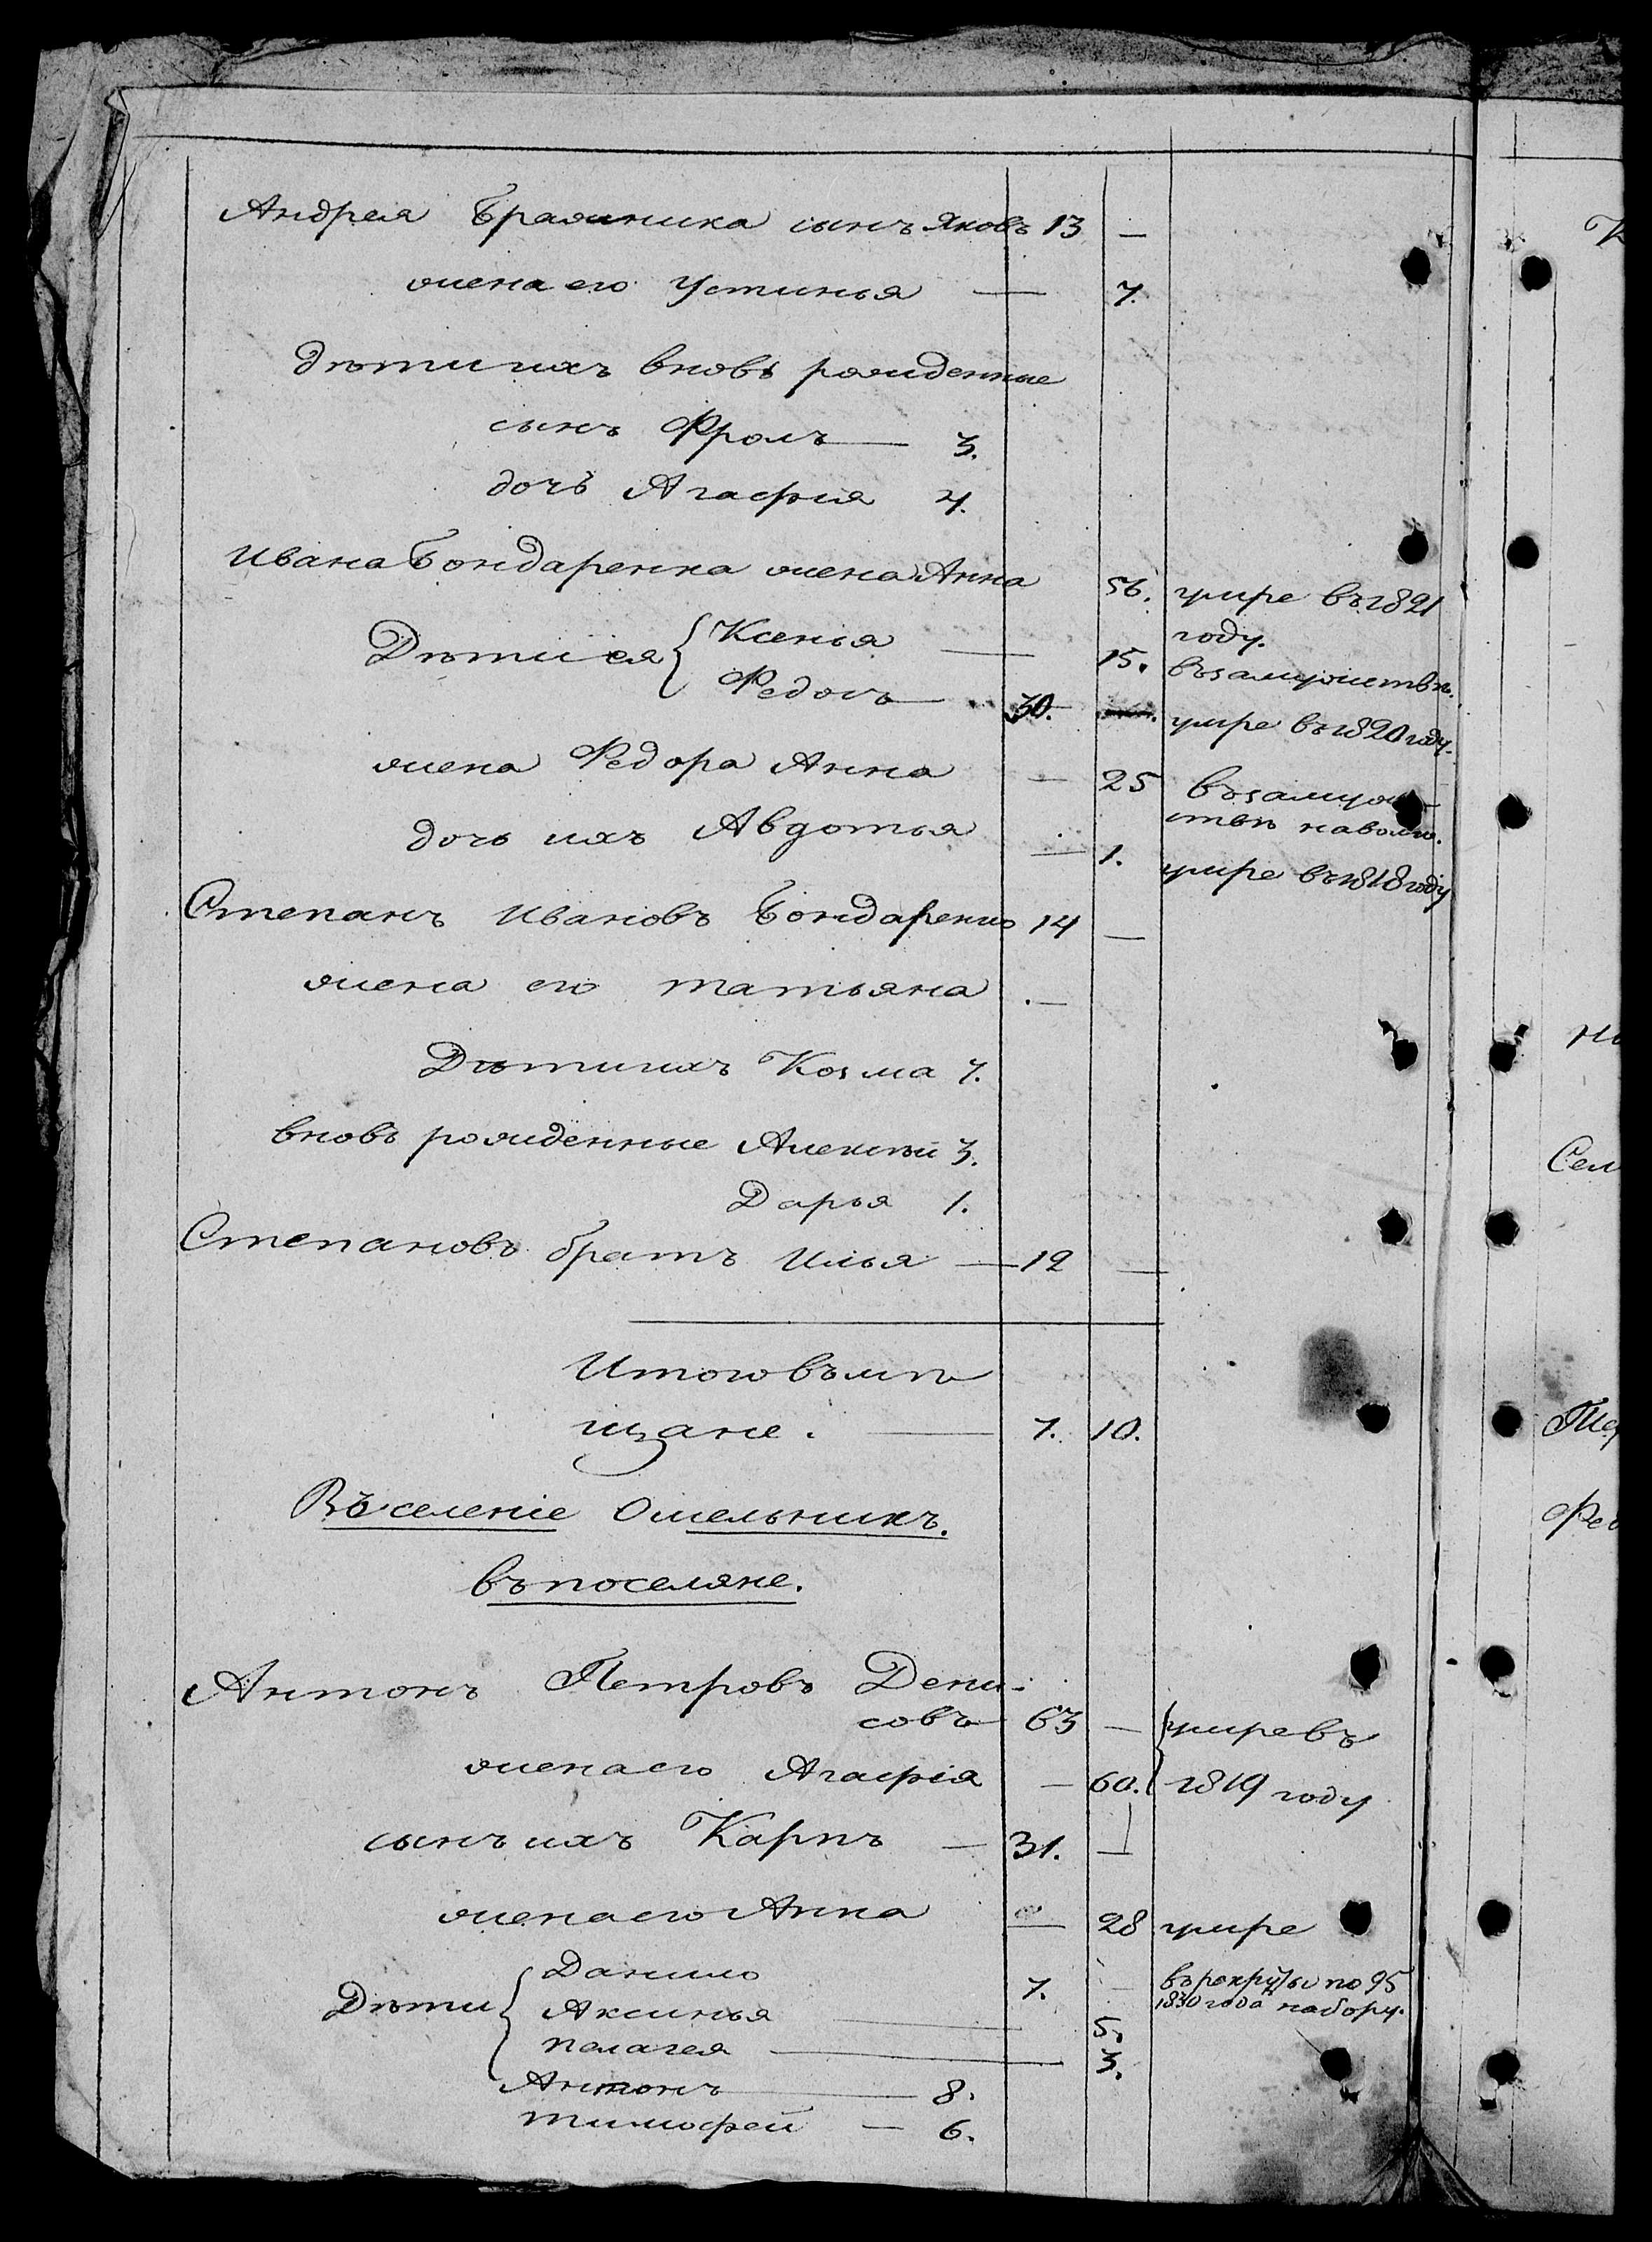 Андрея Бражника сынъ Яковъ 13 —
жена его Устинья — 7.
дѣти ихъ вновь рожденные
сынъ Фролъ — 3.
дочь Агафия 4.
Ивана Бондаренка жена Анна 56. умре въ 1821
году.
Дѣти ея { Ксенья — 15. въ замужествѣ.
Федоръ — 30. умре въ 1820 году.
жена Федора Анна — 25 въ замуже-
ствѣ
дочь ихъ Авдотья — 1. умре въ 1818 году
Степанъ Ивановъ Бондаренко 14 —
жена его Татьяна —
Дѣти ихъ Козма 7.
вновь рожденные Алексѣй 3.
Дарья 1.
Степановъ братъ Илья — 12 —
Итого въ мѣ
щане. — 7. 10.
Въ селеніе Омельникъ.
въ поселяне.
Антонъ Петровъ Дени-
совъ 63 — { умре въ
жена его Агафія — 60. 1819 году
сынъ ихъ Карпъ — 31. —
жена его Анна — 28 умре
Дѣти { Данило 7. — въ рекруты по 95
1830 года набору.
Аксинья — 5.
Пелагея — 3.
Антонъ — 8.
Тимофей — 6.